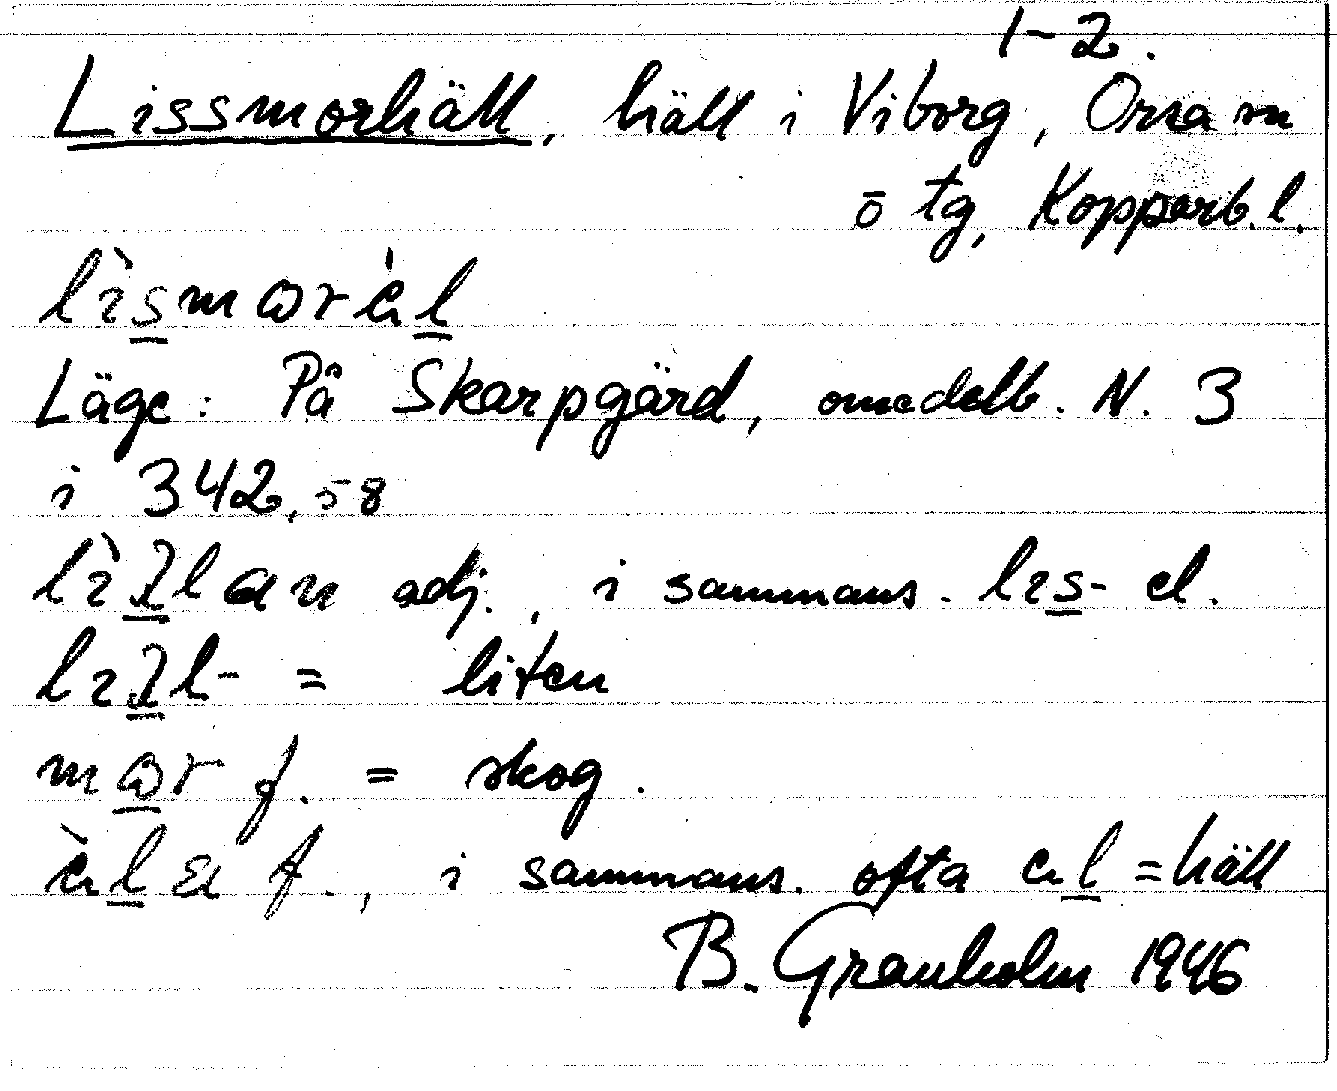 1-2.
Lissmorhäll, häll i Viborg, Orsa sn
ö tg, Kopparb. l.
Läge: På Skarpgärd, omedelb. N. 3
i 342,58
adj., i sammans. el.
= liten
f. = skog.
f., i sammans. ofta = häll
B. Granholm 1946